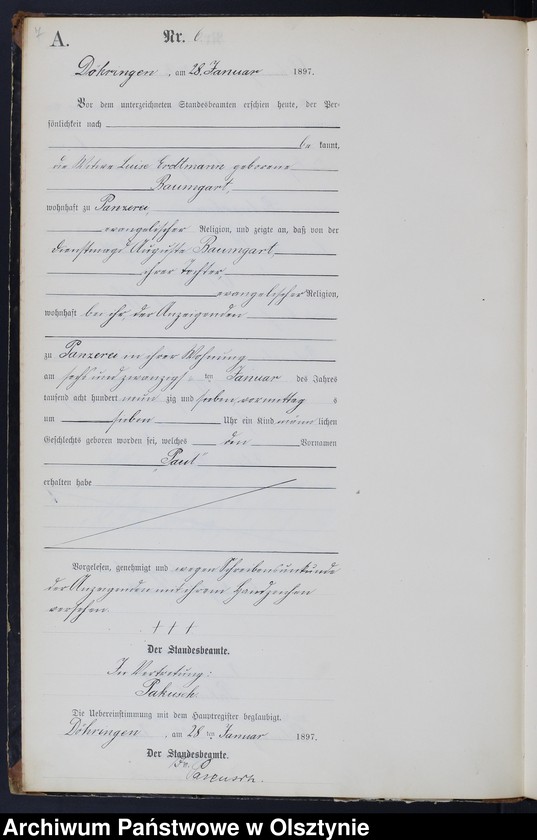 A.
Nr. 6
Döhringen, am 28. Januar 1897.
Vor dem unterzeichneten Standesbeamten erschien heute, der Per-
sönlichkeit nach
be kannt,
die Witwe Luise Erdtmann geborene
Baumgart,
wohnhaft zu Panzerei,
evangelischer Religion, und zeigte an, daß von der
Dienstmagd Auguste Baumgart,
ihrer Tochter,
evangelischer Religion,
wohnhaft bei ihr der Anzeigenden
zu Panzerei in ihrer Wohnung
am sechs und zwanzigsten Januar des Jahres
tausend acht hundert neun zig und sieben vormittags
um sieben Uhr ein Kind männlichen
Geschlechts geboren worden sei, welches den Vornamen
Paul
erhalten habe
Vorgelesen, genehmigt und wegen Schreibensunkunde
der Anzeigenden mit ihrem Handzeichen
versehen
+++
Der Standesbeamte.
In Vertretung:
Pakusch
Die Uebereinstimmung mit dem Hauptregister beglaubigt.
Döhringen, am 28 ten Januar 1897.
Der Standesbeamte.
Archiwum Państwowe w Olsztynie